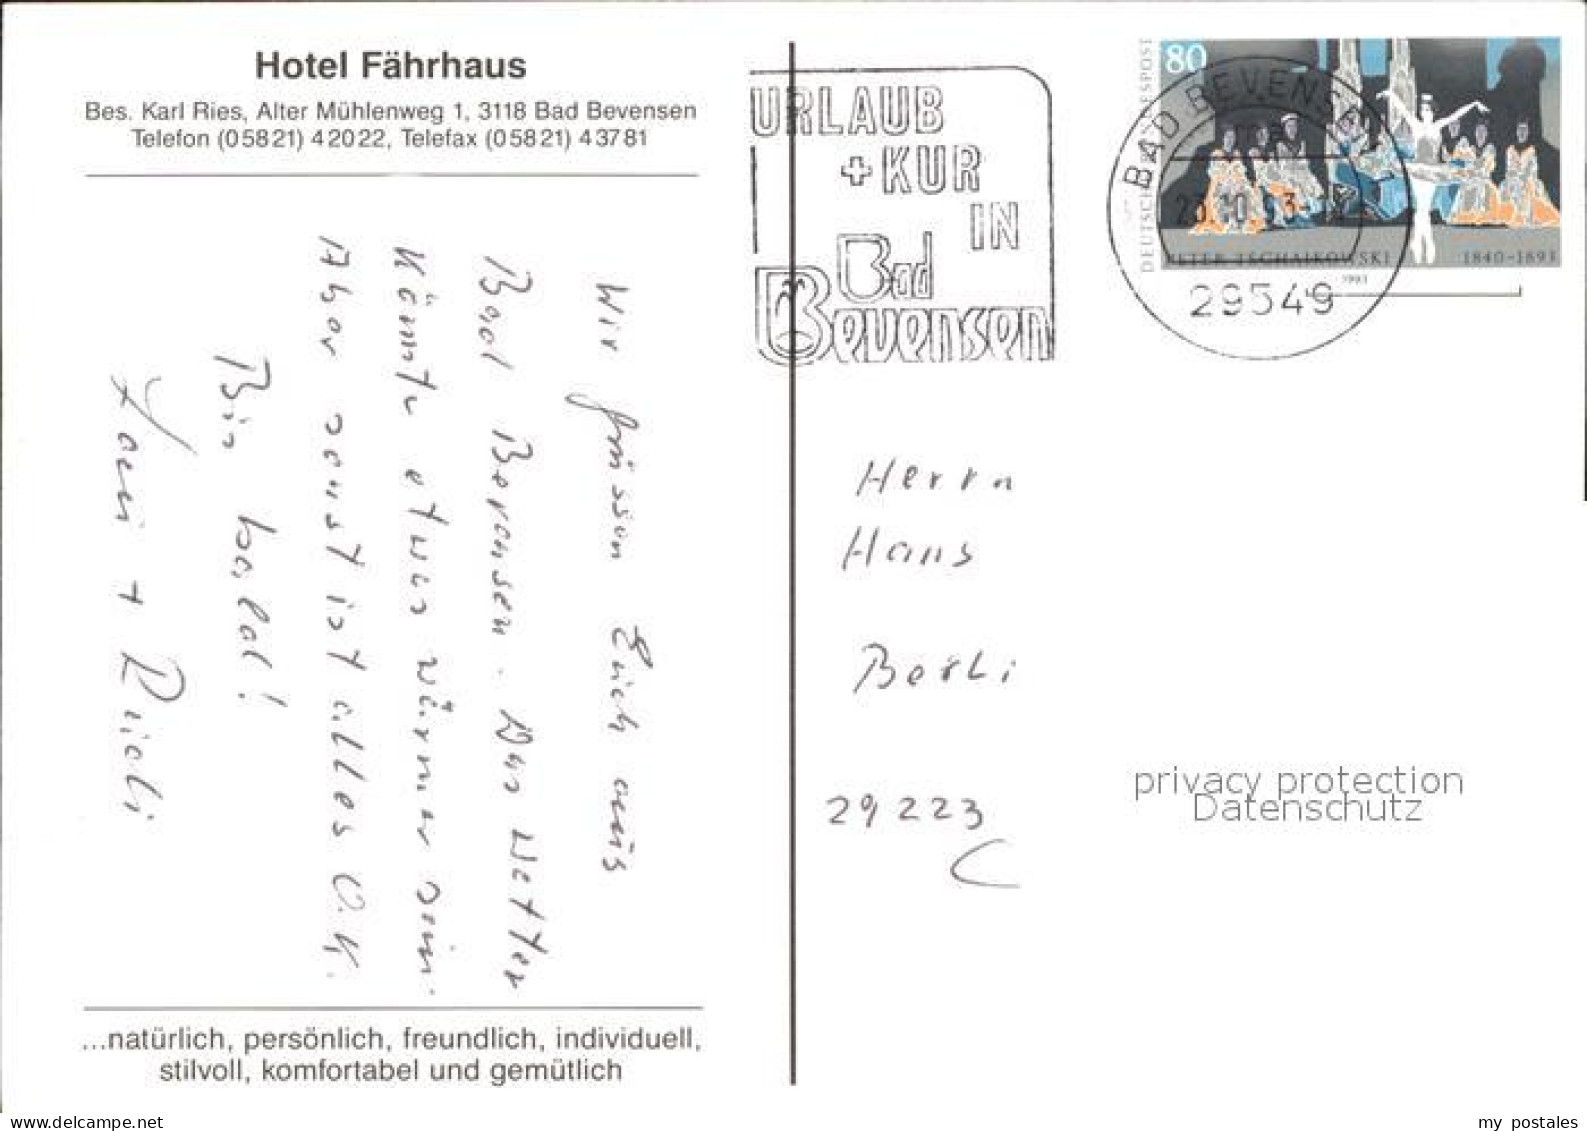 Hotel Fährhaus
Bes. Karl Ries, Alter Mühlenweg 1, 3118 Bad Bevensen
Telefon (05821) 42022, Telefax (05821) 43781
Wir grüssen Euch aus
Bad Bevensen. Das Wetter
Könnte etwas wärmer sein.
Aber sonst ist alles O.K.
Bis bald!
+
...natürlich, persönlich, freundlich, individuell,
stilvoll, komfortabel und gemütlich
URLAUB
+ KUR
IN
Bad
Bevensen
80
DEUTSCHE BUNDESPOST
PETER TSCHAIKOWSKI 1840-1893
1993
BAD BEVENSEN
29549
Herrn
Hans
Berli
29223
C
privacy protection
Datenschutz
delcampe.net
my postales